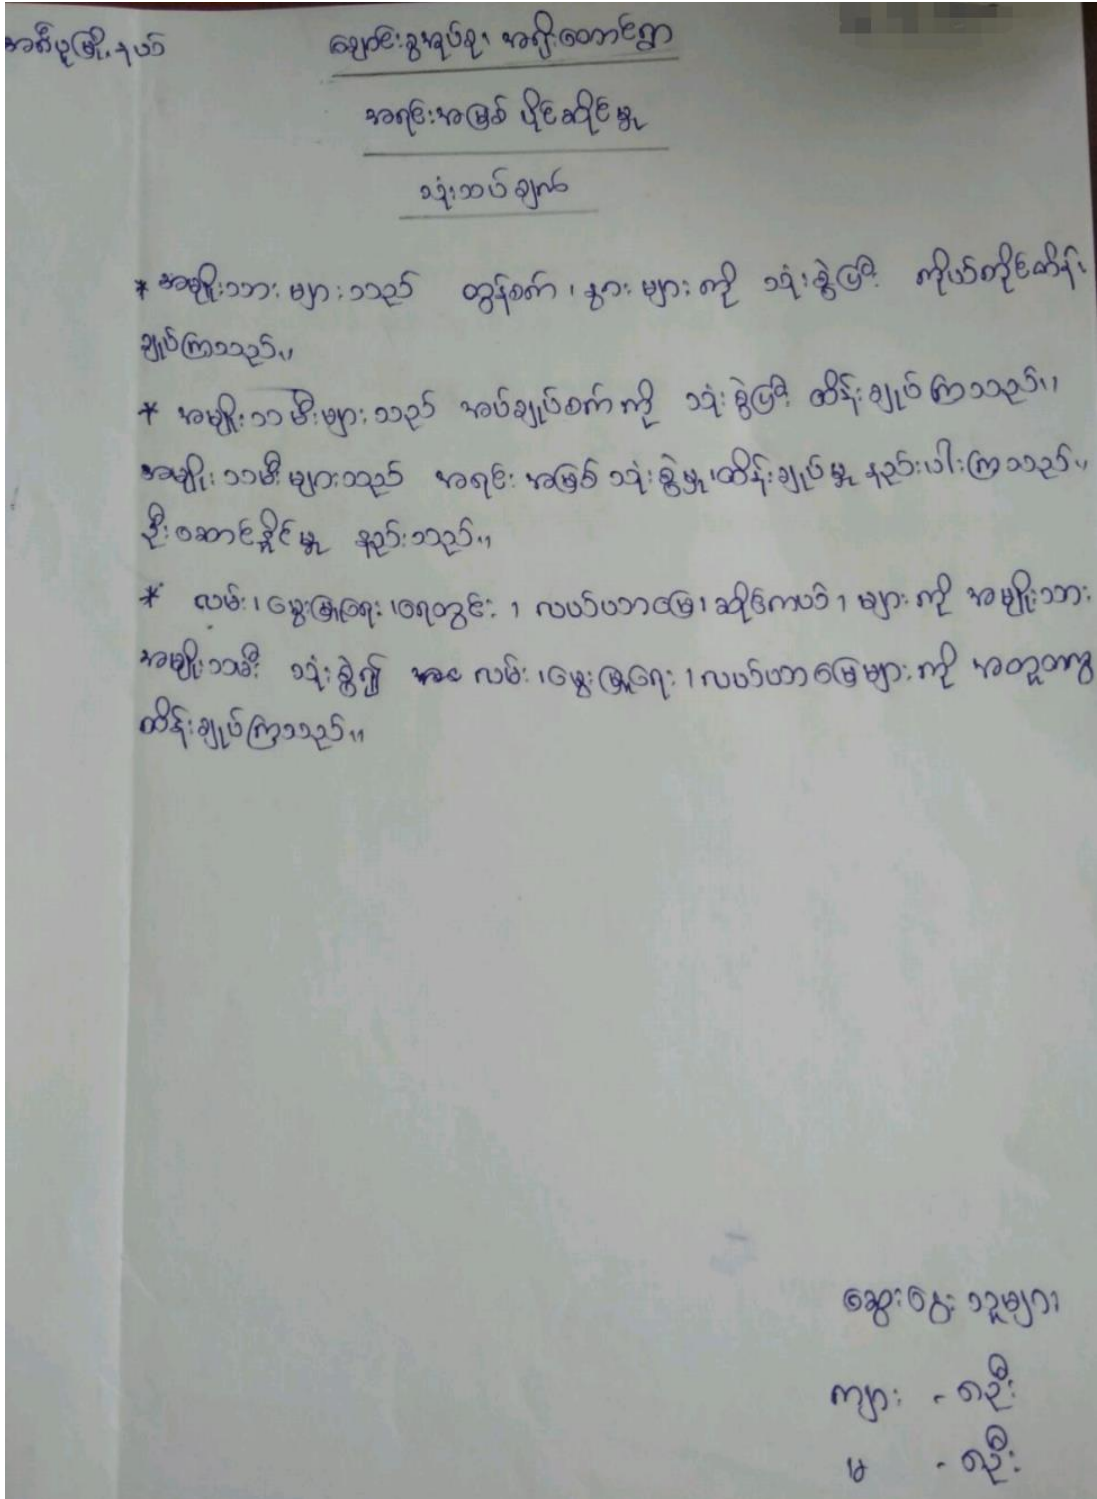 အင်္ဂပူမြို့နယ် ချောင်းခွအုပ်စု၊ အရိုးတောင်ရွာ
အရင်းအမြစ် ပိုင်ဆိုင်မှု
သုံးသပ်ချက်
* အမျိုးသားများသည် ထွန်စက်၊ နွားများကို သုံးစွဲခြင်း ကိုယ်တိုင်ထိန်း
ချုပ်ကြသည်။
* အမျိုးသမီးများသည် အပ်ချုပ်စက်ကို သုံးစွဲခြင်း ထိန်းချုပ်ကြသည်။
အမျိုးသမီးများသည် အရင်းအမြစ် သုံးစွဲမှု၊ ထိန်းချုပ်မှု နည်းပါးကြသည်။
ဦးဆောင်နိုင်မှု နည်းသည်။
* လမ်း၊ မွေးမြူရေး၊ ရေတွင်း၊ လယ်ယာမြေ၊ ဆိုင်ကယ်၊ များကို အမျိုးသား
အမျိုးသမီး သုံးစွဲ၍ လမ်း၊ မွေးမြူရေး၊ လယ်ယာမြေများကို အတူတကွ
ထိန်းချုပ်ကြသည်။
ဆွေးနွေးသူများ
ကျား - ၈ဦး
မ - ဦး